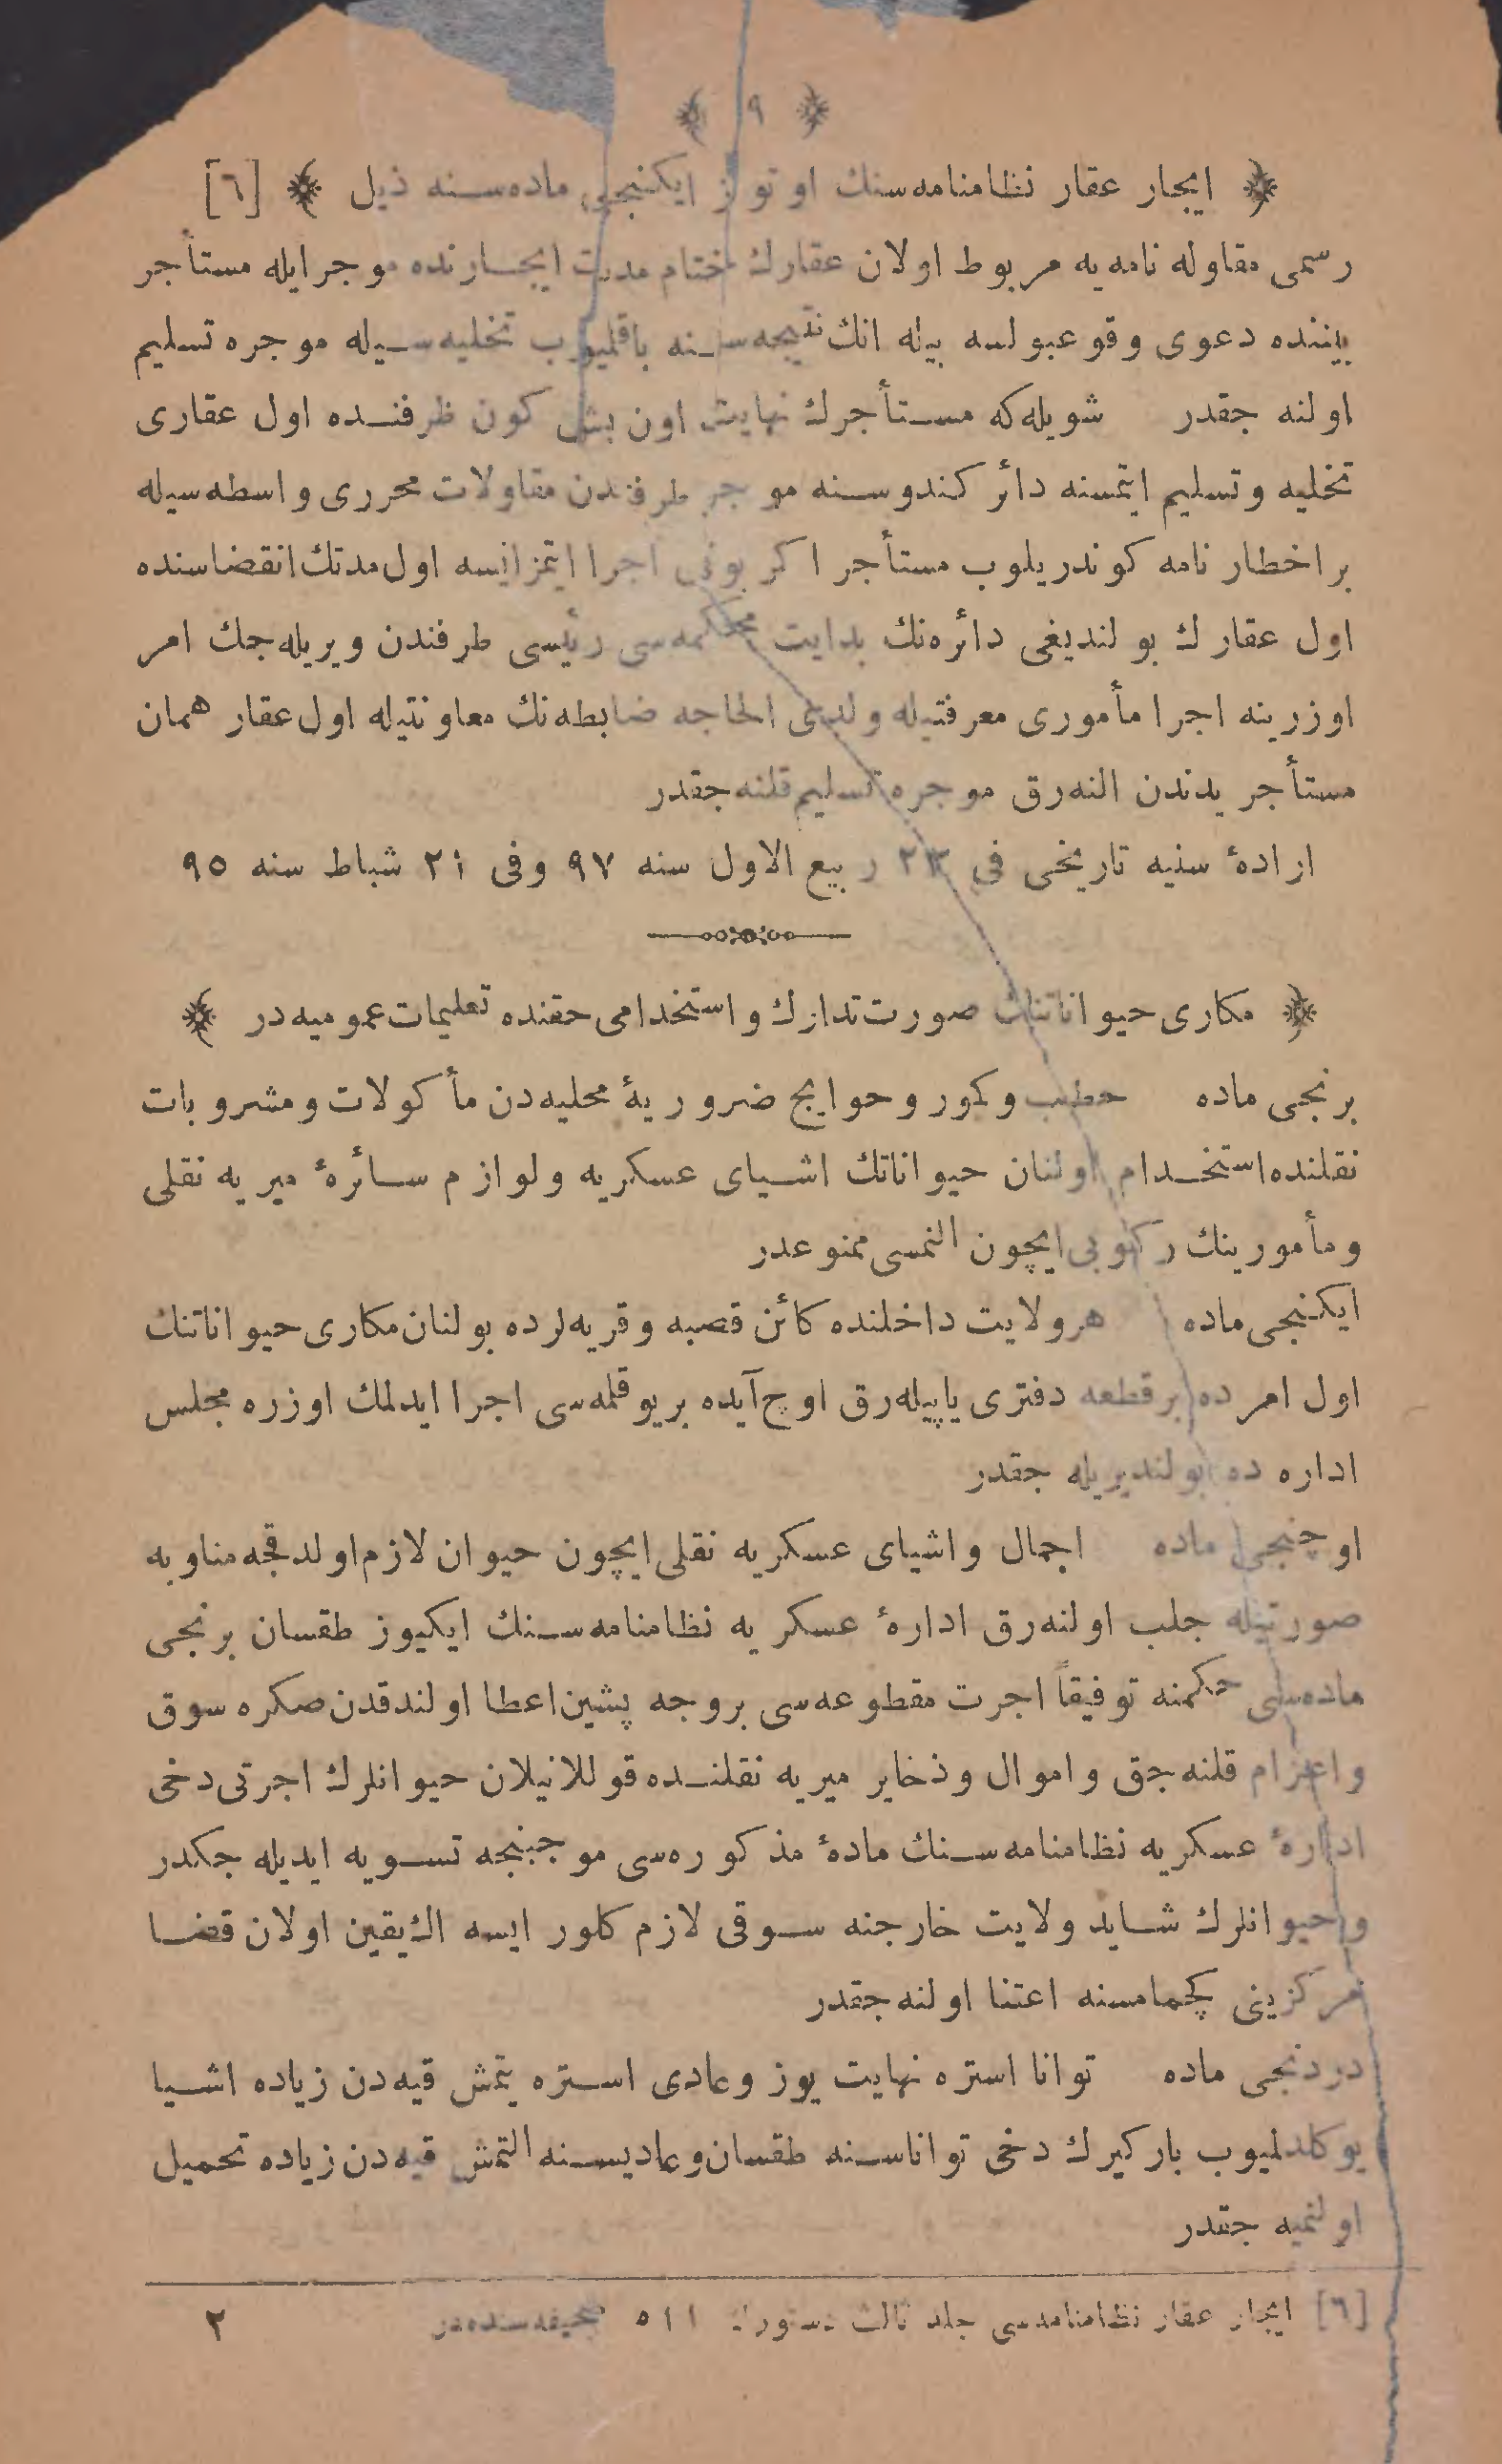 ﴿ ٩ ﴾
﴿ ايجار عقار نظامنامه‌سنك اوتوز ايكنجى ماده‌سنه ذيل ﴾ [٦]
رسمى مقاوله نامه‌يه مربوط اولان عقارك ختام مدت ايجارنده موجرايله مستأجر
بيننده دعوى وقوعبولسه بيله انك نتيجه‌سنه باقلميوب تخليه‌سيله موجره تسليم
اولنه جقدر شويله‌كه مستأجرك نهايت اون بش كون ظرفنده اول عقارى
تخليه وتسليم ايتمسنه دائر كندوسنه موجر طرفندن مقاولات محررى واسطه‌سيله
براخطار نامه كوندريلوب مستأجر اكر بونى اجرا ايتمزايسه اول مدتك انقضاسنده
اول عقارك بولنديغى دائره‌نك بدايت محكمه‌سى رئيسى طرفندن ويريله‌جك امر
اوزرينه اجرا مأمورى معرفتيله ولدى الحاجه ضابطه‌نك معاونتيله اول عقار همان
مستأجر يدندن النه‌رق موجره تسليم قلنه‌جقدر
ارادهٔ سنيه تاريخى فى ٢٣ ربيع الاول سنه ٩٧ وفى ٢١ شباط سنه ٩٥
﴿ مكارى حيواناتنك صورت تدارك واستخدامى حقنده تعليمات عموميه‌در ﴾
برنجى ماده حطب وكمور وحوايج ضروريهٔ محليه‌دن مأكولات ومشروبات
نقلنده استخدام اولنان حيواناتك اشياى عسكريه ولوازم سائرهٔ ميريه نقلى
ومأمورينك ركوبى ايچون النمسى ممنوعدر
ايكنجى ماده هرولايت داخلنده كائن قصبه وقريه‌لرده بولنان مكارى حيواناتنك
اول امرده برقطعه دفترى ياپيله‌رق اوچ آيده بريوقلمه‌سى اجرا ايدلمك اوزره مجلس
اداره ده بولنديريله جقدر
اوچنجى ماده اجمال واشياى عسكريه نقلى ايچون حيوان لازم اولدقجه مناوبه
صورتيله جلب اولنه‌رق ادارهٔ عسكريه نظامنامه‌سنك ايكيوز طقسان برنجى
ماده‌سى حكمنه توفيقاً اجرت مقطوعه‌سى بروجه پشين اعطا اولندقدن صكره سوق
واعزام قلنه‌جق واموال وذخاير ميريه نقلنده قوللانيلان حيوانلرك اجرتى دخى
ادارهٔ عسكريه نظامنامه‌سنك مادهٔ مذكوره‌سى موجبنجه تسويه ايديله جكدر
وحيوانلرك شايد ولايت خارجنه سوقى لازم كلور ايسه اك يقين اولان قضا
مركزينى كچمامسنه اعتنا اولنه‌جقدر
دردنجى ماده توانا استره نهايت يوز وعادى استره يتمش قيه‌دن زياده اشيا
يوكلدلميوب باركيرك دخى تواناسنه طقسان وعاديسنه التمش قيه‌دن زياده تحميل
اولنميه جقدر
[٦] ايجار عقار نظامنامه‌سى جلد ثالث دستورك ٥١١ صحيفه‌سنده‌در
٢